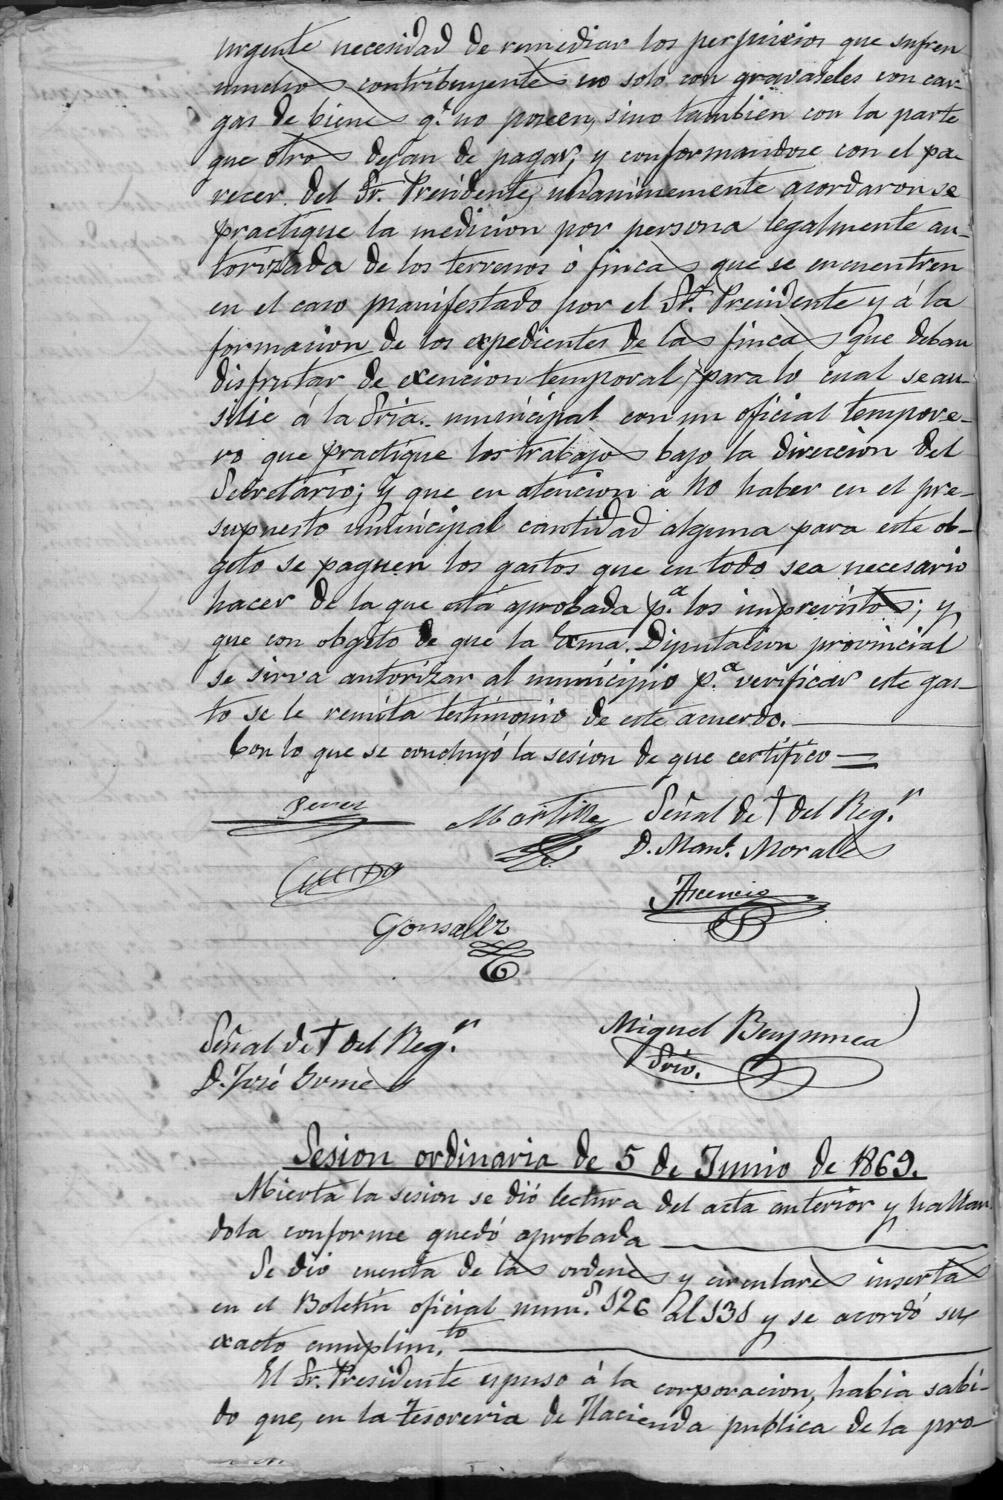 urgente necesidad de remediar los perjuicios que sufren
muchos contribuyentes no solo con gravarseles con car-
gas de bienes q.e no poseen, sino tambien con la parte
que otros dejan de pagar; y conformandose con el pa-
recer del Sr. Presidente, unanimemente acordaron se
practique la medicion por persona legalmente au-
torizada de los terrenos ó fincas que se encuentren
en el caso manifestado por el Sr. Presidente y á la
formacion de los expedientes de las fincas que deban
disfrutar de exencion temporal, para lo cual se au-
silie á la Sria. municipal con un oficial tempore-
ro que practique los trabajos bajo la direccion del
Secretario; y que en atencion a no haber en el pre-
supuesto municipal cantidad alguna para este ob-
geto se paguen los gastos que en todo sea necesario
hacer de la que está aprobada p.a los imprevistos; y
que con obgeto de que la Exma. Diputacion provincial
se sirva autorizar al municipio p.a verificar este gas-
to se le remita testimonio de este acuerdo.
Con lo que se concluyó la sesion de que certifico
Perez
Martinez
Señal de † del Reg.r
D. Man.l Morales
Ascencio
Gonsalez
Señal de † del Reg.r
D. José Gomes
Miguel
Srio.
Sesion ordinaria de 5 de Junio de 1869.
Abierta la sesion se dió lectura del acta anterior y hallan
dola conforme quedó aprobada
Se dió cuenta de las ordenes y circulares insertas
en el Boletin oficial num.s 126 al 131 y se acordó su
exacto cumplim.to
El Sr. Presidente espuso á la corporacion, habia sabi-
do que, en la Tesoreria de Hacienda publica de la pro-